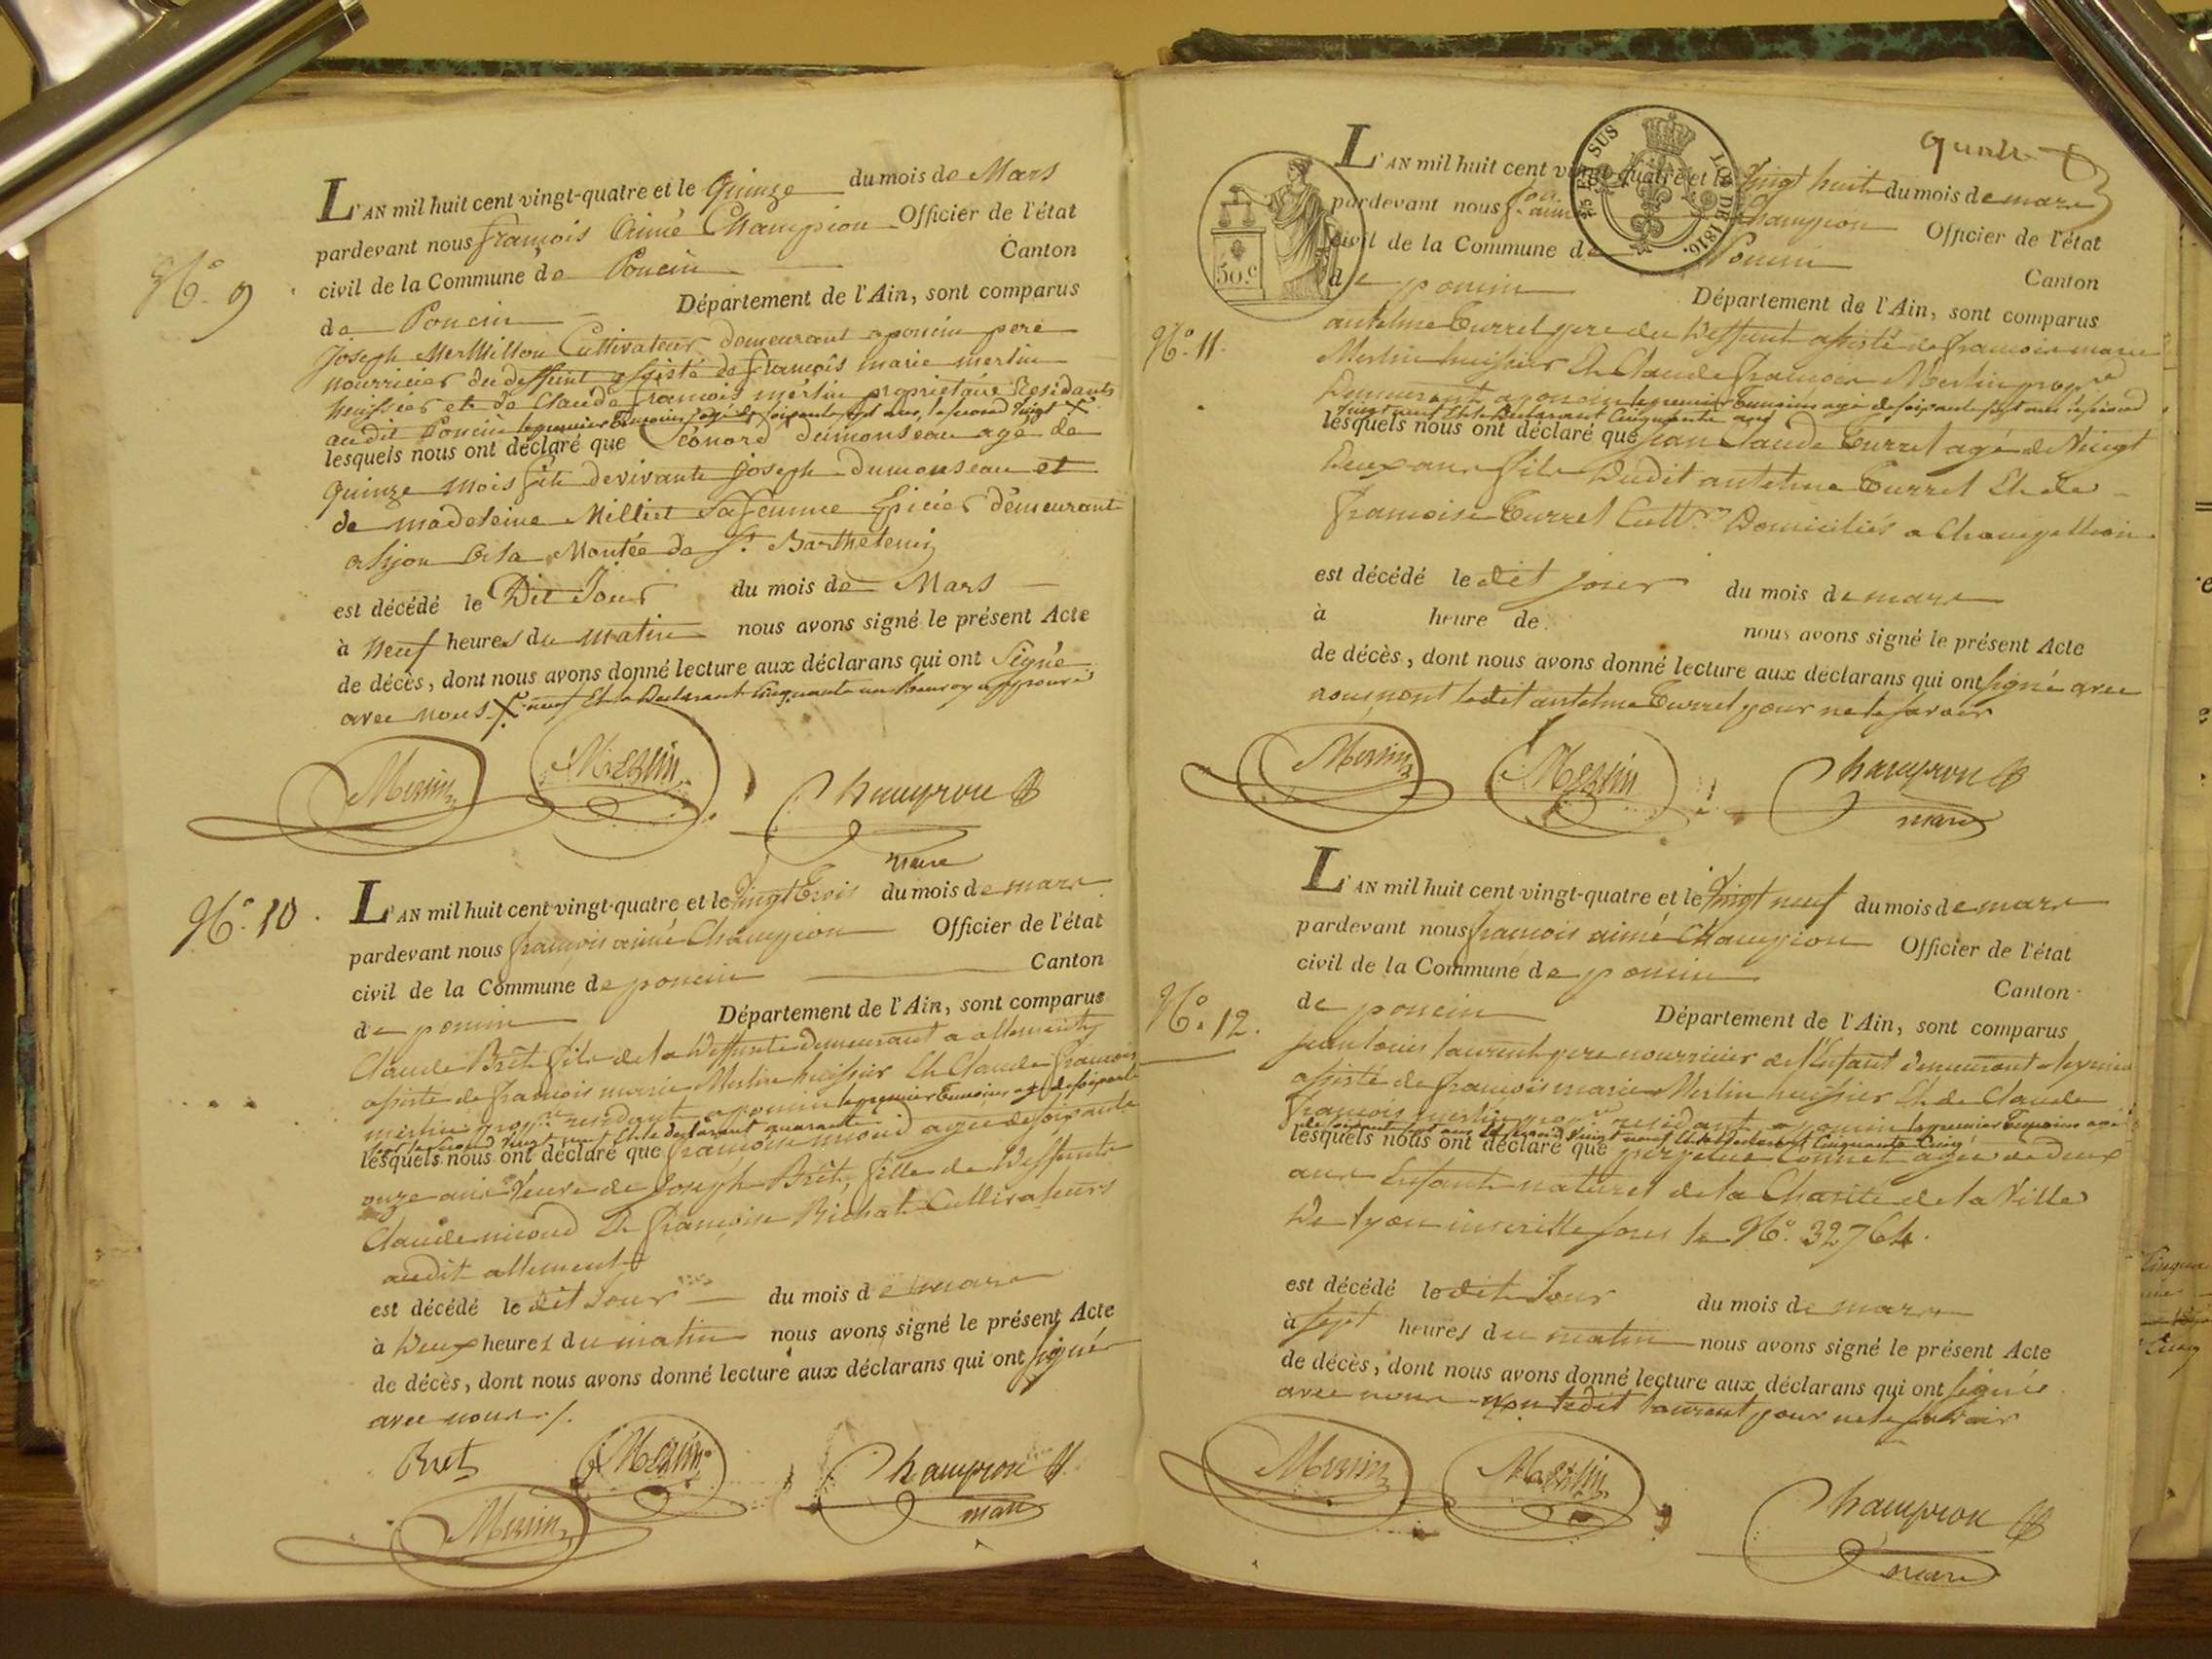 L'AN mil huit cent vingt-quatre et le Quinze du mois de Mars
pardevant nous françois Aimé Champion Officier de l'état
civil de la Commune de Poncin Canton
de Poncin Département de l'Ain, sont comparus
N.° 9
Joseph Mermillon Cultivateur demeurant a poncin pere
nourricier du deffunt assisté de françois marie merlin
huissier et de Claude françois merlin propriétaire Residants
audit Poncin le premier temoin agé de soixante sept ans, le second vingt X
lesquels nous ont déclaré que Léonord dumonseau agé de
Quinze mois fils de vivants joseph dumonseau et
de madeleine Milliet sa femme Epicier demeurant
a lyon a la Montée de St. Barthelemy
est décédé le Dit Jour du mois de Mars
à neuf heures du matin nous avons signé le présent Acte
de décès, dont nous avons donné lecture aux déclarans qui ont Signé
avec nous X neuf Et le Declarant Cinquante un approuvé
Merlin Merlin Champion
maire
N.° 10.
L'AN mil huit cent vingt-quatre et le vingt trois du mois de mars
pardevant nous françois aimé Champion Officier de l'état
civil de la Commune de poncin Canton
de poncin Département de l'Ain, sont comparus
Claude Brêt fils de la deffunte demeurant a allement
assisté de françois marie Merlin huissier Et Claude françois
merlin prop.re residant a poncin le premier temoin agé de soixante
sept le second vingt neuf Et le declarant quarante
lesquels nous ont déclaré que françoise nicoud agée de soixante
onze ans veuve de Joseph Brêt, fille de deffunts
Claude nicoud Et françoise Bichat Cultivateurs
audit allement
est décédé le dit Jour du mois de mars
à deux heures du matin nous avons signé le présent Acte
de décès, dont nous avons donné lecture aux déclarans qui ont signé
avec nous ./.
Bret Merlin Champion
Merlin maire
quatre
50.c
25 C. EN SUS
LOI DE 1816.
L'AN mil huit cent vingt-quatre et le vingt huit du mois de mars
pardevant nous f.ois aimé Champion Officier de l'état
civil de la Commune de Poncin
Canton
de poncin Département de l'Ain, sont comparus
N.° 11.
antelme Curret pere du deffunt assisté de françois marie
Merlin huissier Et Claude françois Merlin prop.re
demeurant a poncin le premier temoin agé de soixante sept ans le second
vingt neuf Et le Declarant Cinquante ans
lesquels nous ont déclaré que jean Claude Curret agé de vingt
deux ans fils dudit antelme Curret Et de
françoise Curret Cult.rs Domiciliés a Champollion
est décédé le dit jour du mois de mars
à heure de nous avons signé le présent Acte
de décès, dont nous avons donné lecture aux déclarans qui ont signé avec
nous non ledit antelme Curret pour ne le savoir
Merlin Merlin Champion
maire
L'AN mil huit cent vingt-quatre et le vingt neuf du mois de mars
pardevant nous françois aimé Champion Officier de l'état
civil de la Commune de poncin
Canton
de poncin Département de l'Ain, sont comparus
N.° 12.
jean louis laurent pere nourricier de l'Enfant demeurant a
assisté de françois marie Merlin huissier Et de Claude
françois merlin prop.re residant a poncin le premier Temoin agé
de soixante sept ans Et second vingt neuf Et le Declarant Cinquante Cinq
lesquels nous ont déclaré que perpetue Connet agée de deux
ans Enfant naturel de la Charité de la Ville
De lyon inscritte sous le N.° 32764.
est décédé le dit Jour du mois de mars
à sept heures du matin nous avons signé le présent Acte
de décès, dont nous avons donné lecture aux déclarans qui ont signé
avec nous non ledit laurent pour ne le savoir
Merlin Merlin Champion
maire